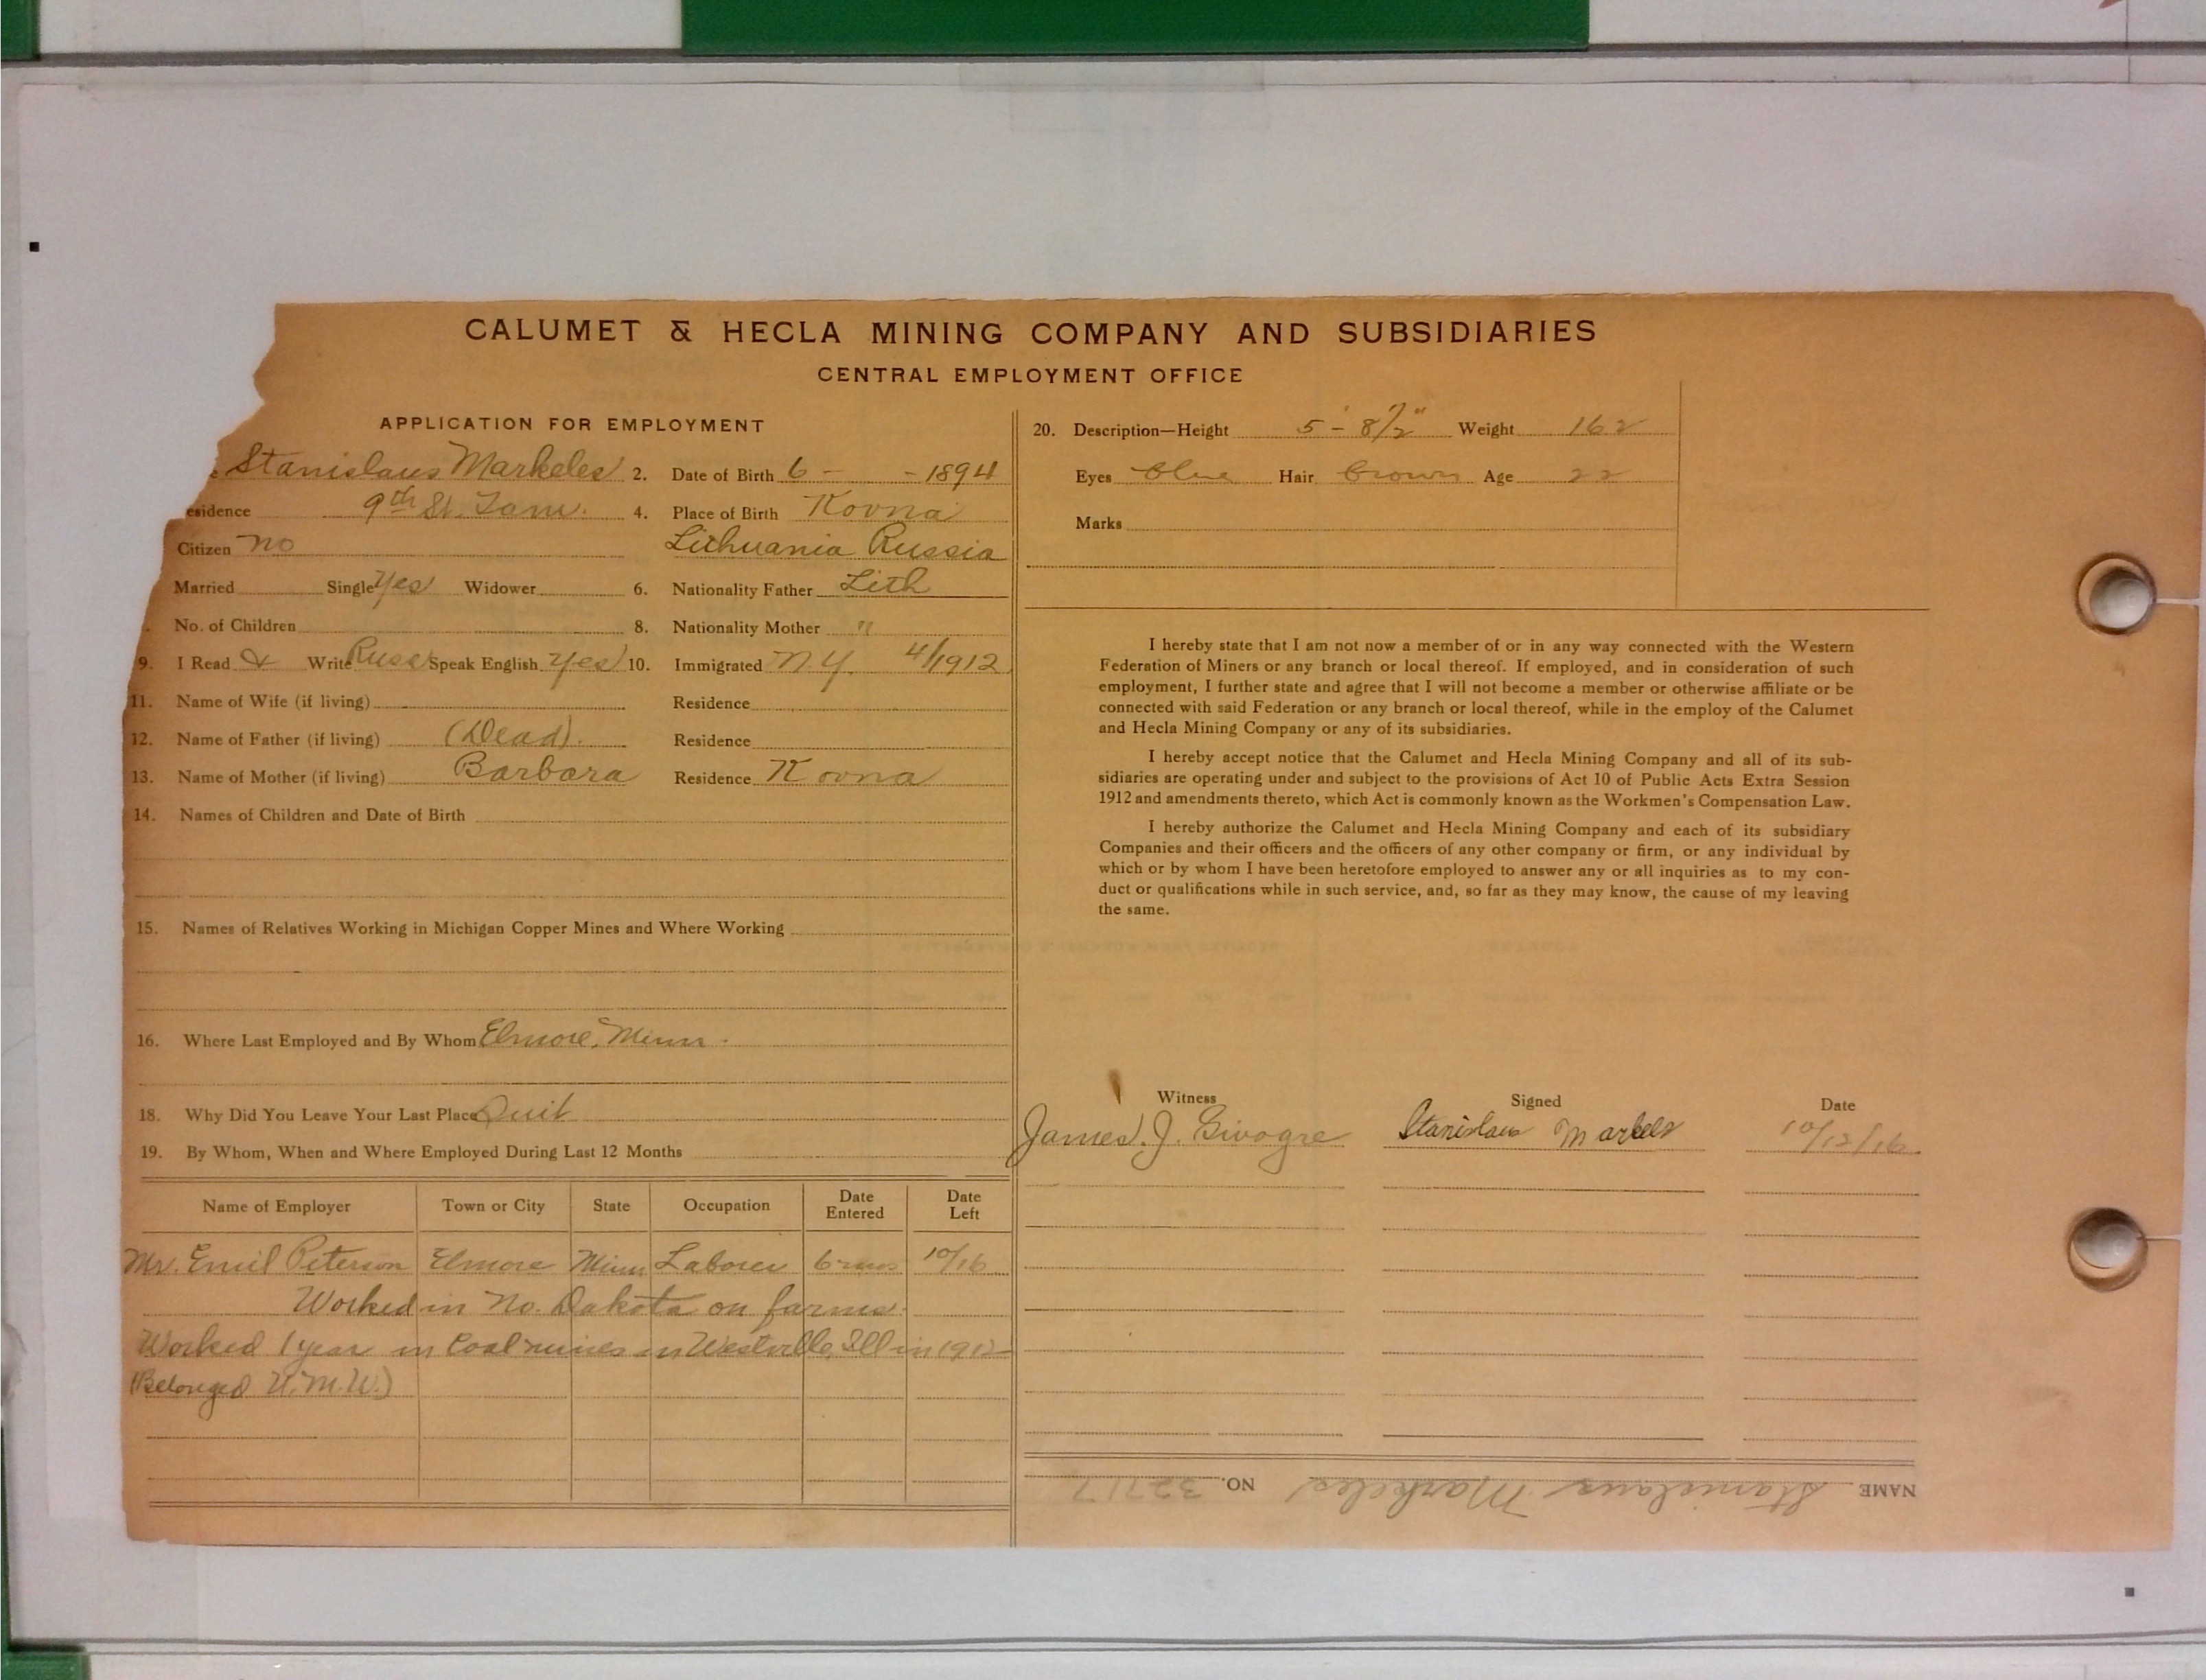 CALUMET & HECLA MINING COMPANY AND SUBSIDIARIES
CENTRAL EMPLOYMENT OFFICE
APPLICATION FOR EMPLOYMENT
e Stanislaus Markeles 2. Date of Birth 6 - - 1894
esidence 9th St. Tam. 4. Place of Birth Kovna
Citizen no Lithuania Russia
Married Single Yes Widower 6. Nationality Father Lith
No. of Children 8. Nationality Mother "
9. I Read & Write Russ Speak English Yes 10. Immigrated N.Y. 4/1912
11. Name of Wife (if living) Residence
12. Name of Father (if living) (Dead). Residence
13. Name of Mother (if living) Barbara Residence Kovna
14. Names of Children and Date of Birth
15. Names of Relatives Working in Michigan Copper Mines and Where Working
16. Where Last Employed and By Whom Elmore, Minn.
18. Why Did You Leave Your Last Place Quit
19. By Whom, When and Where Employed During Last 12 Months
Name of Employer Town or City State Occupation Date Entered Date Left
Mr. Emil Peterson Elmore Minn Laborer 6 mos 10/16
Worked in No. Dakota on farms.
Worked 1 year in Coal mines in Westville, Ill in 1912
(Belonged U.M.W.)
20. Description—Height 5' - 8 1/2" Weight 162
Eyes blue Hair brown Age 22
Marks
I hereby state that I am not now a member of or in any way connected with the Western
Federation of Miners or any branch or local thereof. If employed, and in consideration of such
employment, I further state and agree that I will not become a member or otherwise affiliate or be
connected with said Federation or any branch or local thereof, while in the employ of the Calumet
and Hecla Mining Company or any of its subsidiaries.
I hereby accept notice that the Calumet and Hecla Mining Company and all of its sub-
sidiaries are operating under and subject to the provisions of Act 10 of Public Acts Extra Session
1912 and amendments thereto, which Act is commonly known as the Workmen's Compensation Law.
I hereby authorize the Calumet and Hecla Mining Company and each of its subsidiary
Companies and their officers and the officers of any other company or firm, or any individual by
which or by whom I have been heretofore employed to answer any or all inquiries as to my con-
duct or qualifications while in such service, and, so far as they may know, the cause of my leaving
the same.
Witness Signed Date
James J. Givogre Stanislaus Markels 10/12/16
NAME Stanislaus Markeles NO. 32717